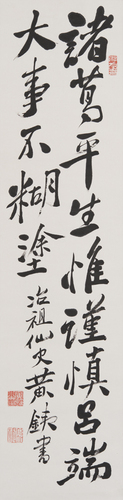 諸葛平生惟謹慎呂端
大事不糊塗
治祖仙史黃鐵書